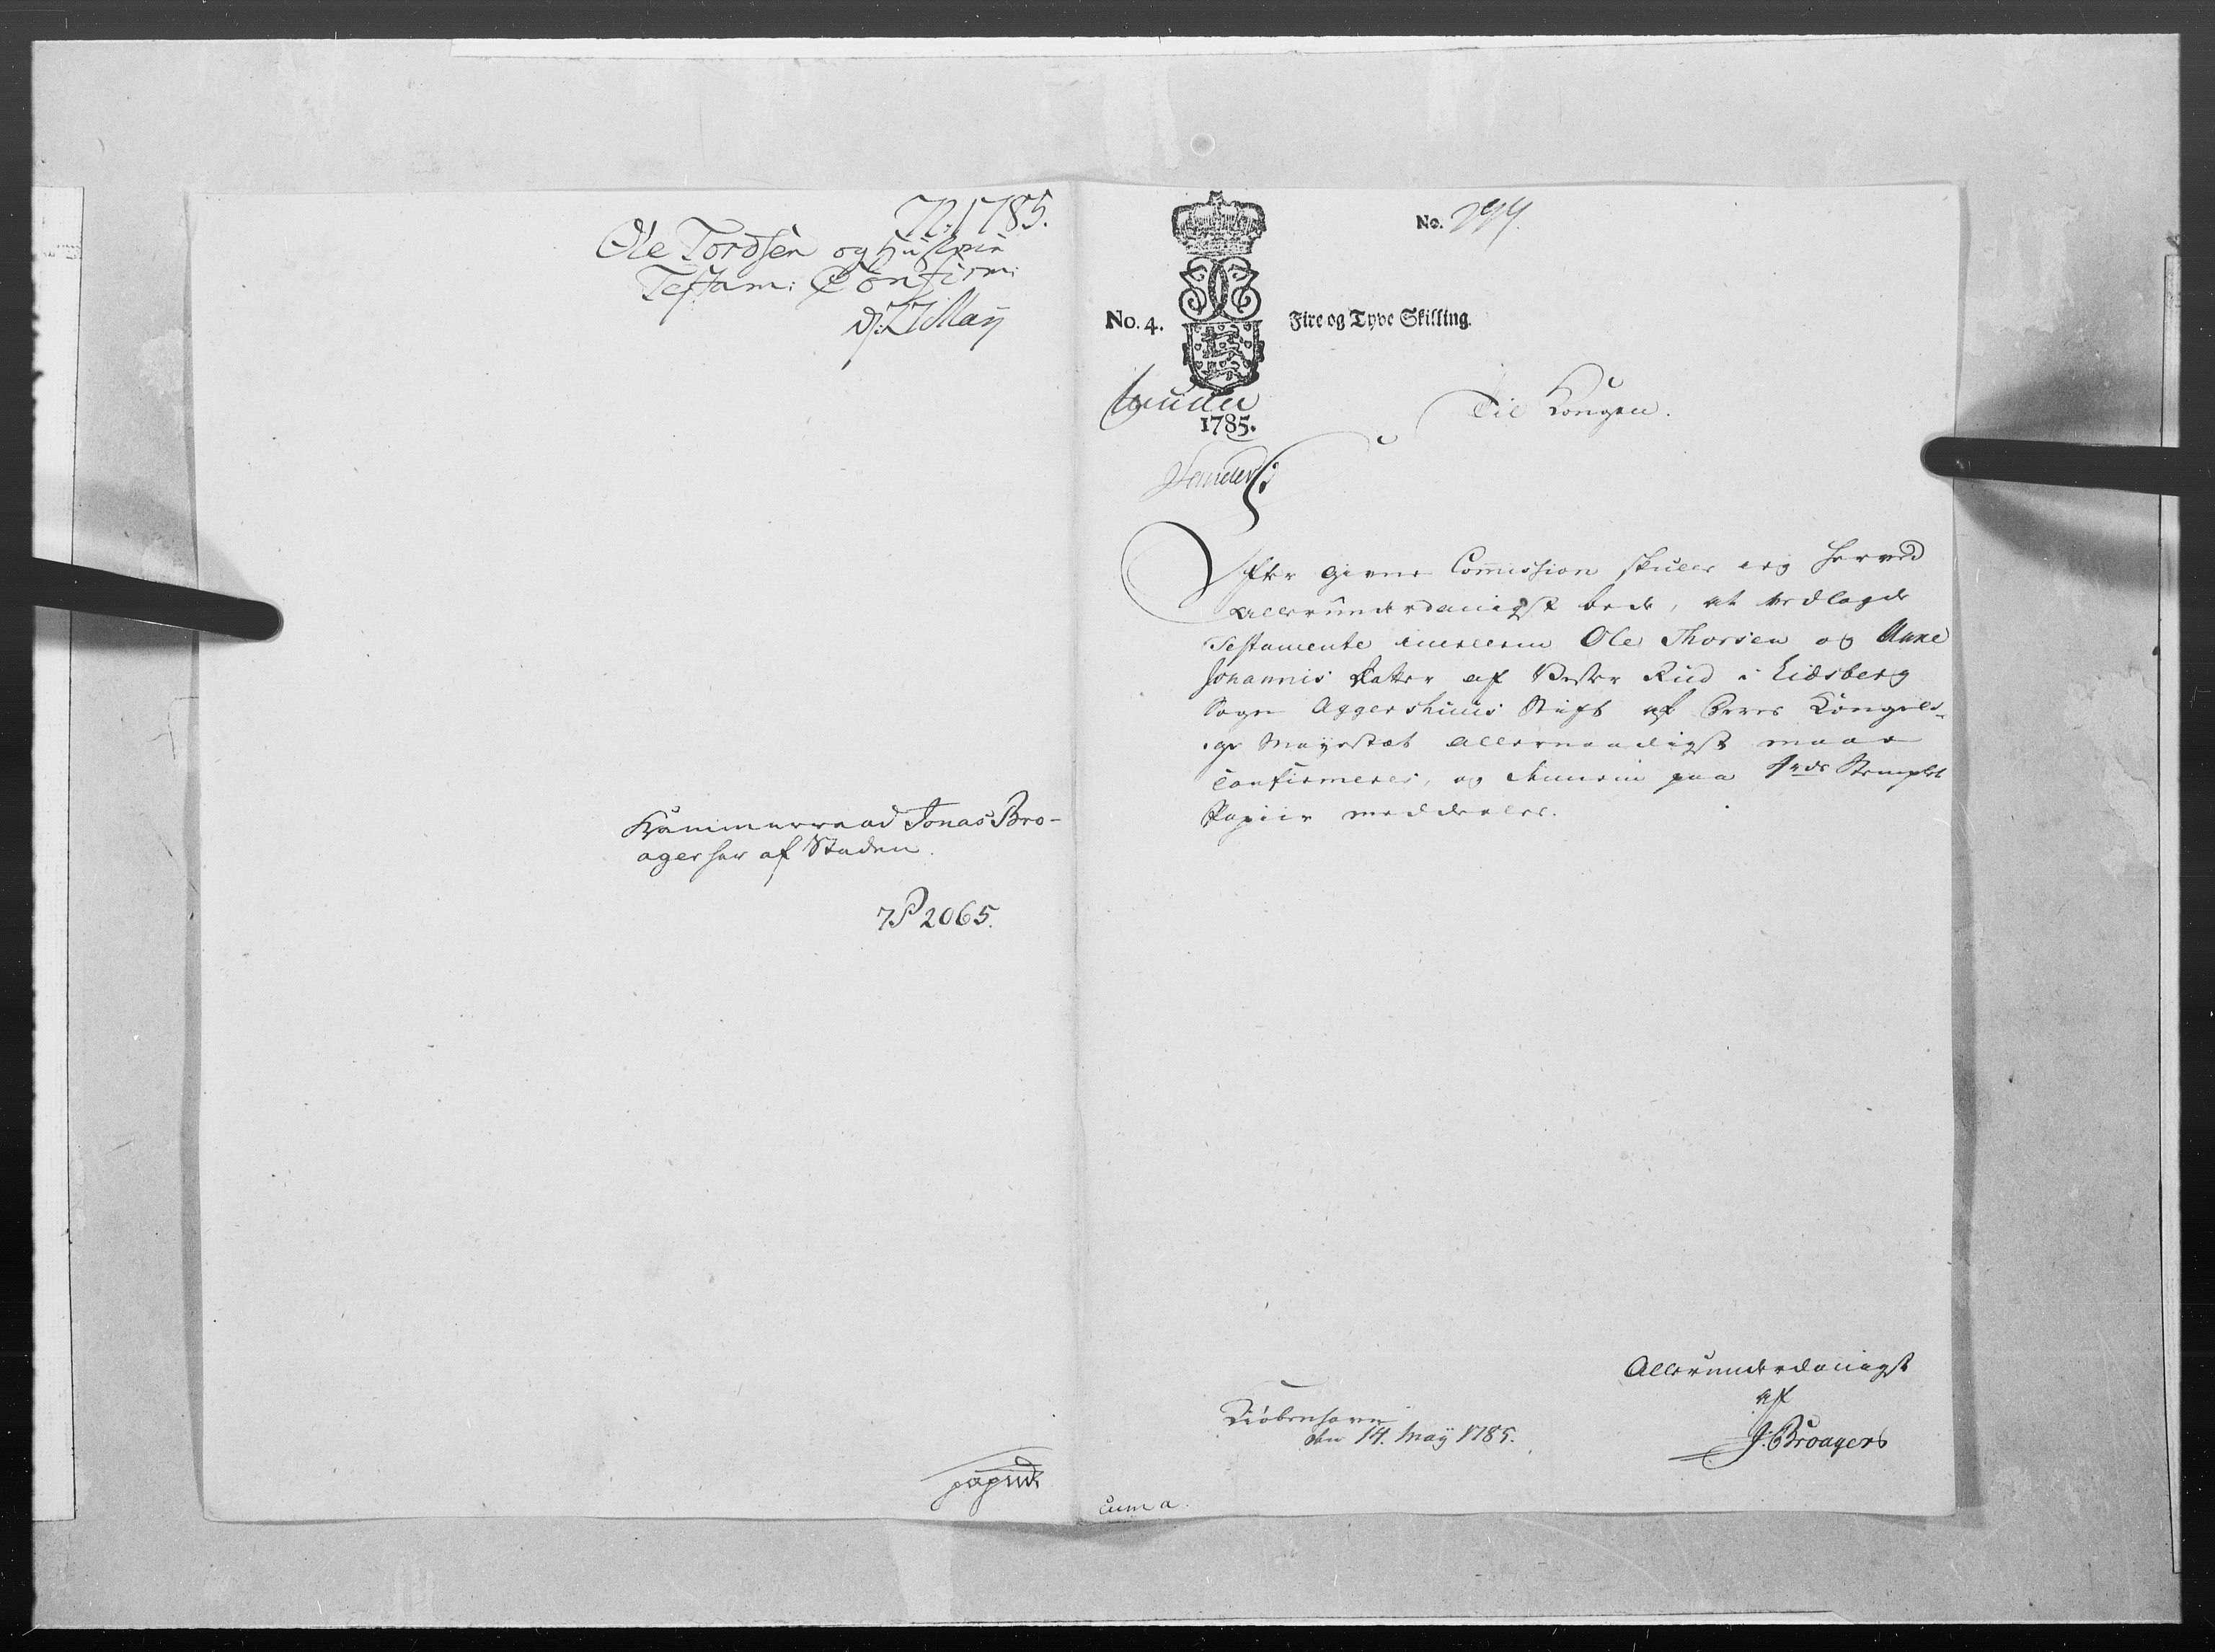 N: 1785.
Ole Tordsen og Hustrue
Testam: Confirm:
d: 27 May
Kammerraad Jonas Bro-
ager her af Staden.
7P 2065.
No. 294.
No. 4.
Fire og Tyve Skilling.
1785.
Til Kongen.
Efter given Commission skulle ieg herved
allerunderdanigst bede, at vedlagde
Testamente imellem Ole Thorsen og Anne
Johannis Datter af Vester Rud i Eidsberg
Sogn Aggershuus Stift af Deres Kongel-
ige Mayestæt allernaadigst maae
Confirmeres, og samme paa Stemplet
Papiir meddeeles.
Allerunderdanigst
af
J. Broagers
Kiøbenhavn
den 14. May 1785.
Cum a.